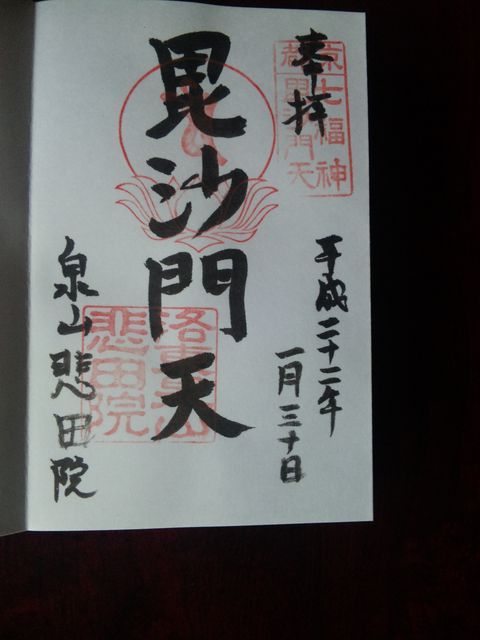 奉拝
京七福神
都毘沙門天
平成二十二年
一月三十日
毘沙門天
泉山悲田院
悲田院